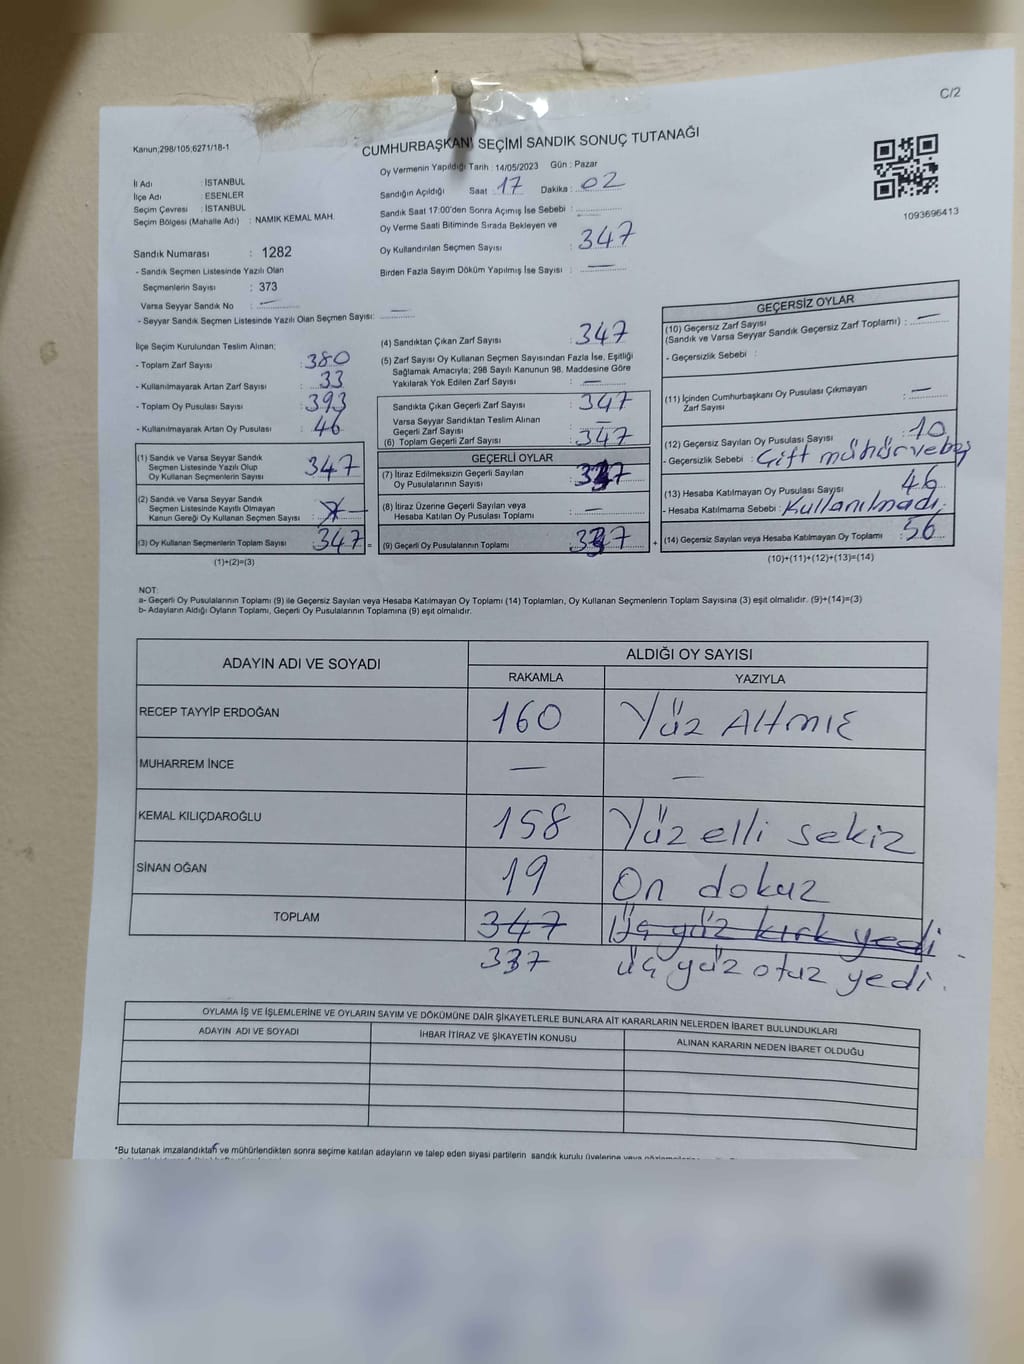 C/2
Kanun,298/105,6271/18-1
CUMHURBAŞKANI SEÇİMİ SANDIK SONUÇ TUTANAĞI
Oy Vermenin Yapıldığı Tarih : 14/05/2023 Gün : Pazar
İl Adı : İSTANBUL
İlçe Adı : ESENLER
Seçim Çevresi : İSTANBUL
Seçim Bölgesi (Mahalle Adı) : NAMIK KEMAL MAH.
Sandığın Açıldığı Saat : 17 Dakika : 02
Sandık Saat 17:00'den Sonra Açımış İse Sebebi :
Oy Verme Saati Bitiminde Sırada Bekleyen ve
Oy Kullandırılan Seçmen Sayısı : 347
Birden Fazla Sayım Döküm Yapılmış İse Sayısı : —
1093696413
Sandık Numarası : 1282
- Sandık Seçmen Listesinde Yazılı Olan
Seçmenlerin Sayısı : 373
Varsa Seyyar Sandık No : —
- Seyyar Sandık Seçmen Listesinde Yazılı Olan Seçmen Sayısı: —
İlçe Seçim Kurulundan Teslim Alınan:
- Toplam Zarf Sayısı : 380
- Kullanılmayarak Artan Zarf Sayısı : 33
- Toplam Oy Pusulası Sayısı : 393
- Kullanılmayarak Artan Oy Pusulası : 46
(1) Sandık ve Varsa Seyyar Sandık
Seçmen Listesinde Yazılı Olup
Oy Kullanan Seçmenlerin Sayısı : 347
(2) Sandık ve Varsa Seyyar Sandık
Seçmen Listesinde Kayıtlı Olmayan
Kanun Gereği Oy Kullanan Seçmen Sayısı : —
(3) Oy Kullanan Seçmenlerin Toplam Sayısı : 347 =
(1)+(2)=(3)
(4) Sandıktan Çıkan Zarf Sayısı : 347
(5) Zarf Sayısı Oy Kullanan Seçmen Sayısından Fazla İse, Eşitliği
Sağlamak Amacıyla; 298 Sayılı Kanunun 98. Maddesine Göre
Yakılarak Yok Edilen Zarf Sayısı : —
Sandıkta Çıkan Geçerli Zarf Sayısı : 347
Varsa Seyyar Sandıktan Teslim Alınan
Geçerli Zarf Sayısı : —
(6) Toplam Geçerli Zarf Sayısı : 347
GEÇERLİ OYLAR
(7) İtiraz Edilmeksizin Geçerli Sayılan
Oy Pusulalarının Sayısı : 337
(8) İtiraz Üzerine Geçerli Sayılan veya
Hesaba Katılan Oy Pusulası Toplamı : —
(9) Geçerli Oy Pusulalarının Toplamı : 337 +
GEÇERSİZ OYLAR
(10) Geçersiz Zarf Sayısı
(Sandık ve Varsa Seyyar Sandık Geçersiz Zarf Toplamı) : —
- Geçersizlik Sebebi :
(11) İçinden Cumhurbaşkanı Oy Pusulası Çıkmayan
Zarf Sayısı : —
(12) Geçersiz Sayılan Oy Pusulası Sayısı : 10
- Geçersizlik Sebebi : Çift mühür ve boş
(13) Hesaba Katılmayan Oy Pusulası Sayısı 46
- Hesaba Katılmama Sebebi : Kullanılmadı.
(14) Geçersiz Sayılan veya Hesaba Katılmayan Oy Toplamı : 56
(10)+(11)+(12)+(13)=(14)
NOT:
a- Geçerli Oy Pusulalarının Toplamı (9) ile Geçersiz Sayılan veya Hesaba Katılmayan Oy Toplamı (14) Toplamları, Oy Kullanan Seçmenlerin Toplam Sayısına (3) eşit olmalıdır. (9)+(14)=(3)
b- Adayların Aldığı Oyların Toplamı, Geçerli Oy Pusulalarının Toplamına (9) eşit olmalıdır.
ADAYIN ADI VE SOYADI ALDIĞI OY SAYISI
RAKAMLA YAZIYLA
RECEP TAYYİP ERDOĞAN 160 Yüz Altmış
MUHARREM İNCE — —
KEMAL KILIÇDAROĞLU 158 Yüz elli sekiz
SİNAN OĞAN 19 On dokuz
TOPLAM 347 Üç yüz kırk yedi
337 üç yüz otuz yedi.
OYLAMA İŞ VE İŞLEMLERİNE VE OYLARIN SAYIM VE DÖKÜMÜNE DAİR ŞİKAYETLERLE BUNLARA AİT KARARLARIN NELERDEN İBARET BULUNDUKLARI
ADAYIN ADI VE SOYADI İHBAR İTİRAZ VE ŞİKAYETİN KONUSU ALINAN KARARIN NEDEN İBARET OLDUĞU
*Bu tutanak imzalandıktan ve mühürlendikten sonra seçime katılan adayların ve talep eden siyasi partilerin sandık kurulu üyelerine veya